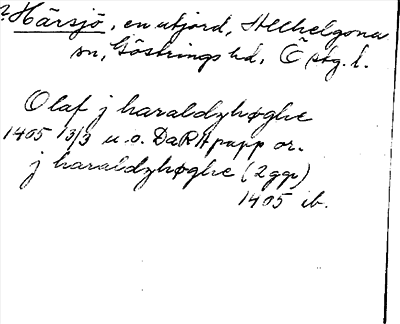 ? Härsjö, en utjord, Allhelgona
sn, Göstrings hd, Östg. l.
Olaf j haraldzhøghe
1405 13/3 u.o. DaRA papp or.
j haraldzhøghe (2 ggr)
1405 ib.